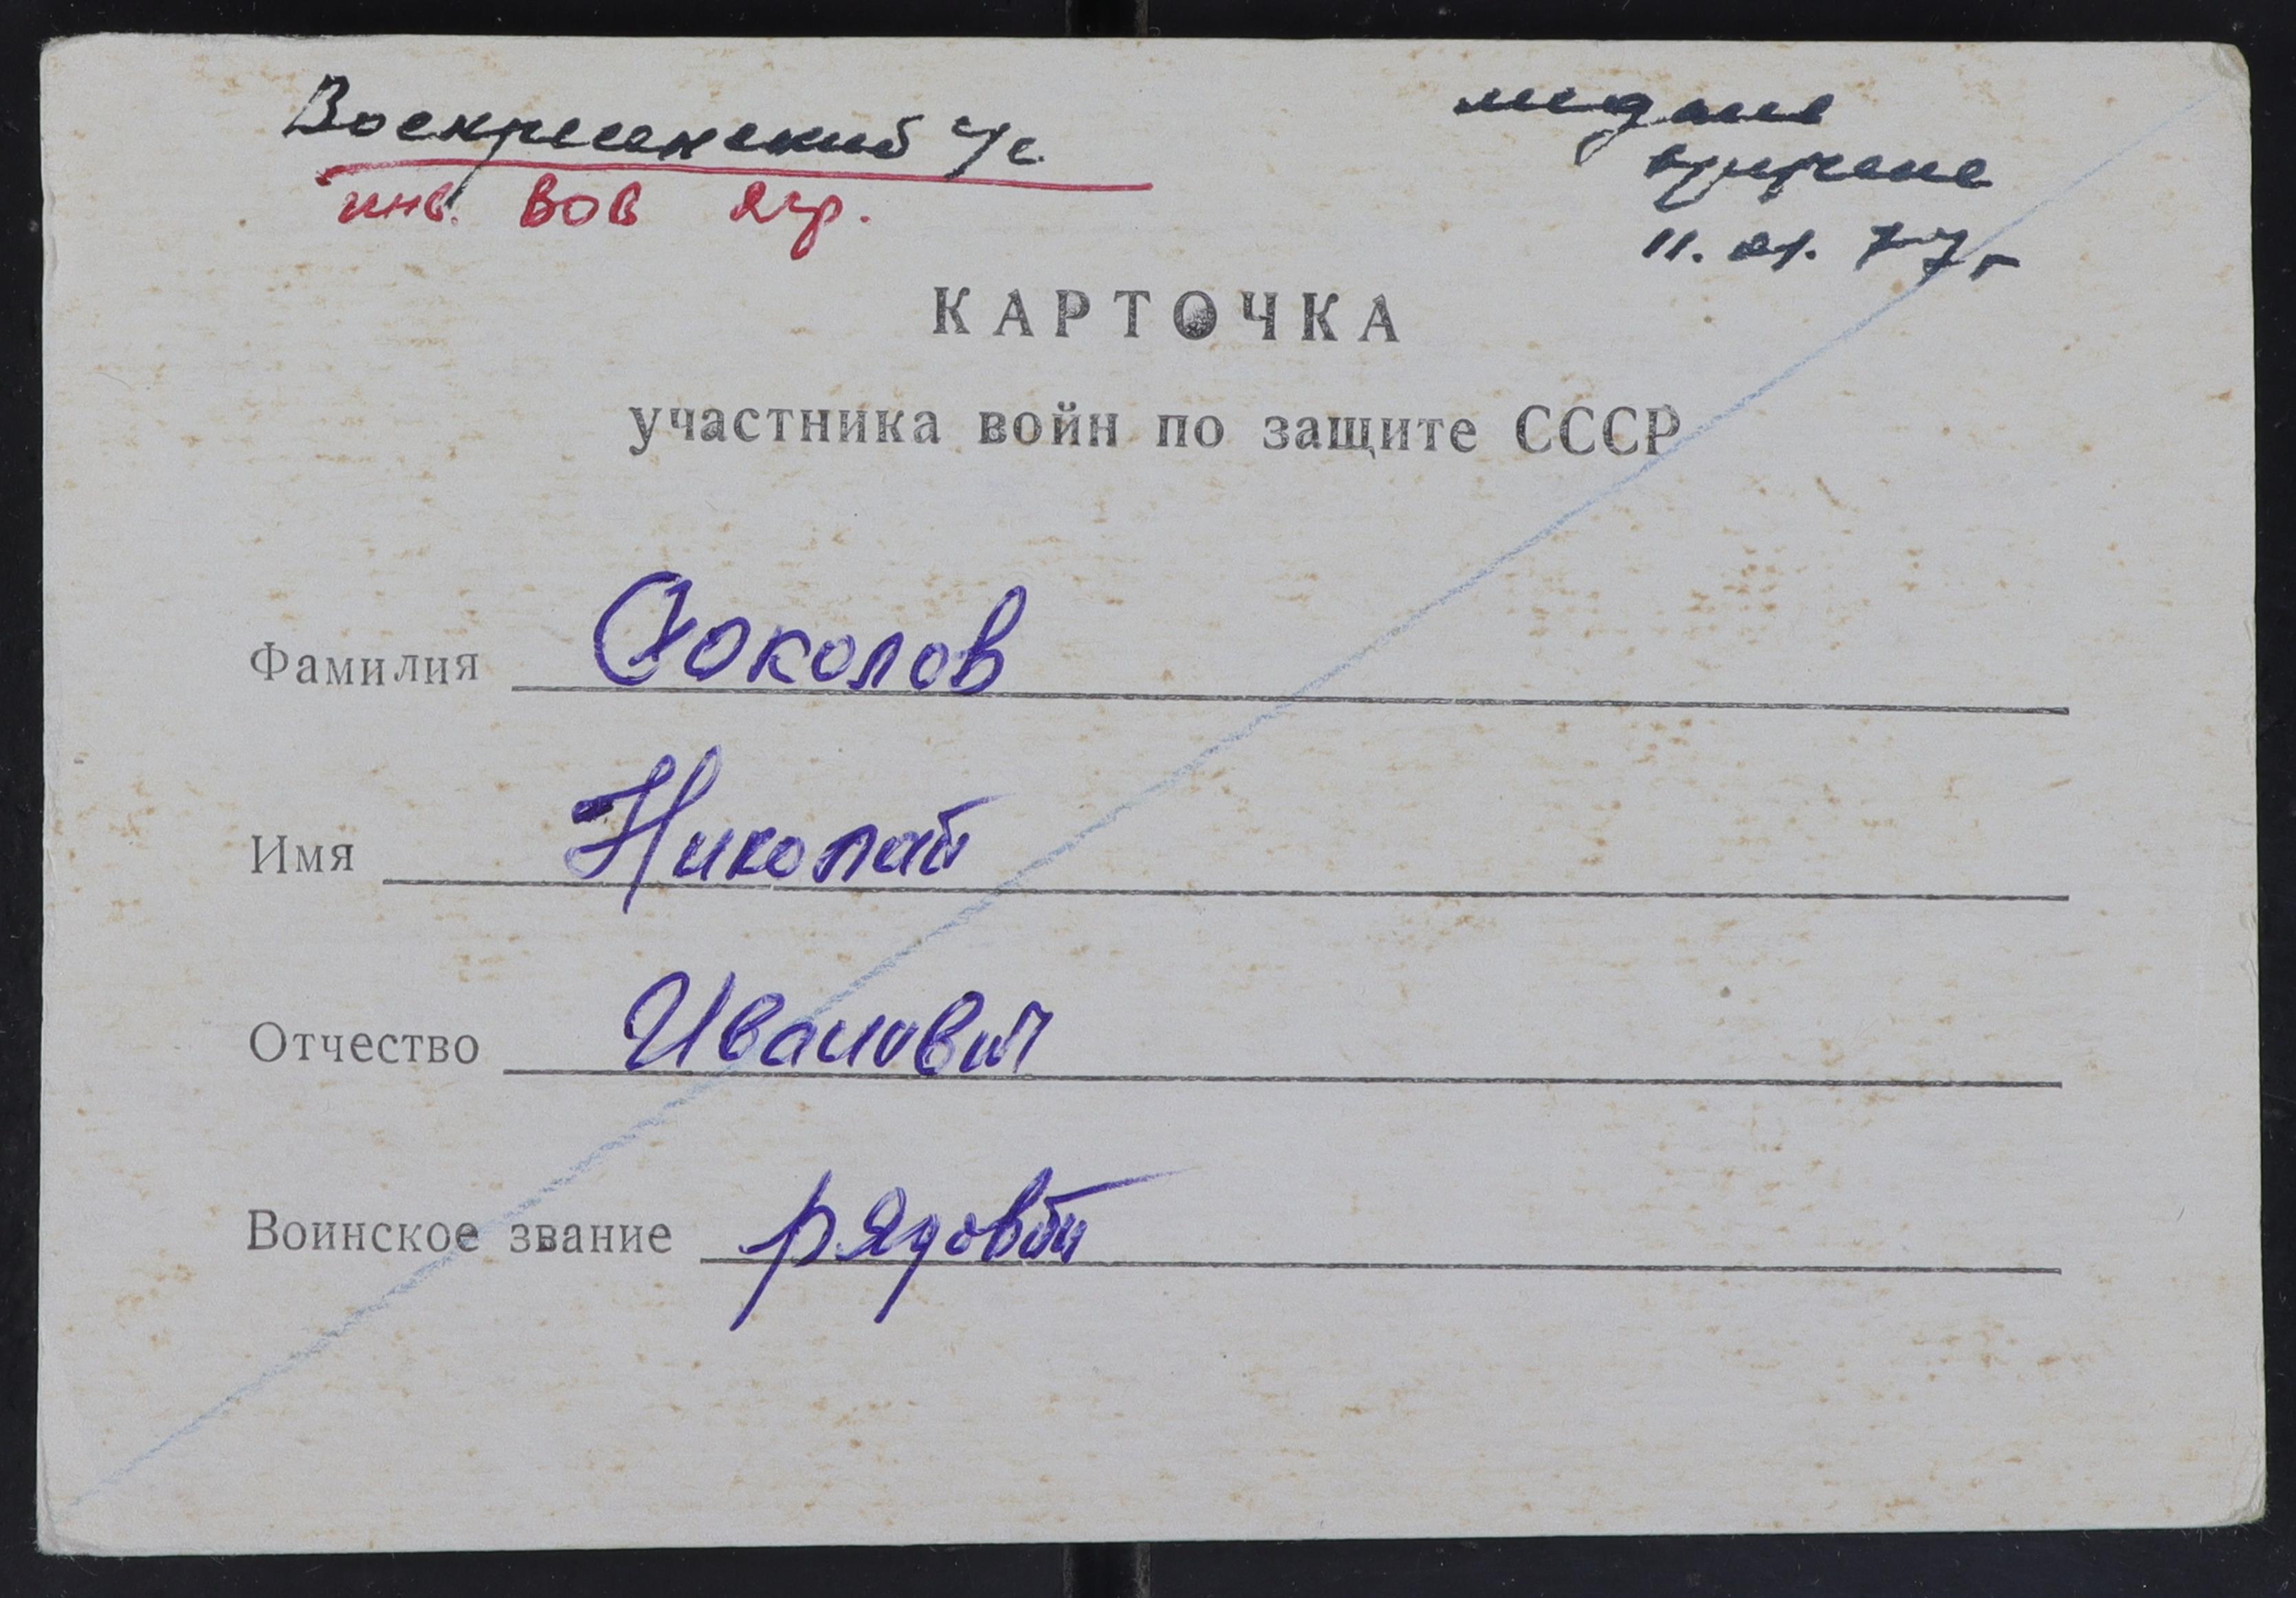 Воскресенский с/с
инв. ВОВ 2гр.
медаль
вручена
11. 01. 77г
КАРТОЧКА
участника войн по защите СССР
Фамилия Соколов
Имя Николай
Отчество Иванович
Воинское звание рядовой